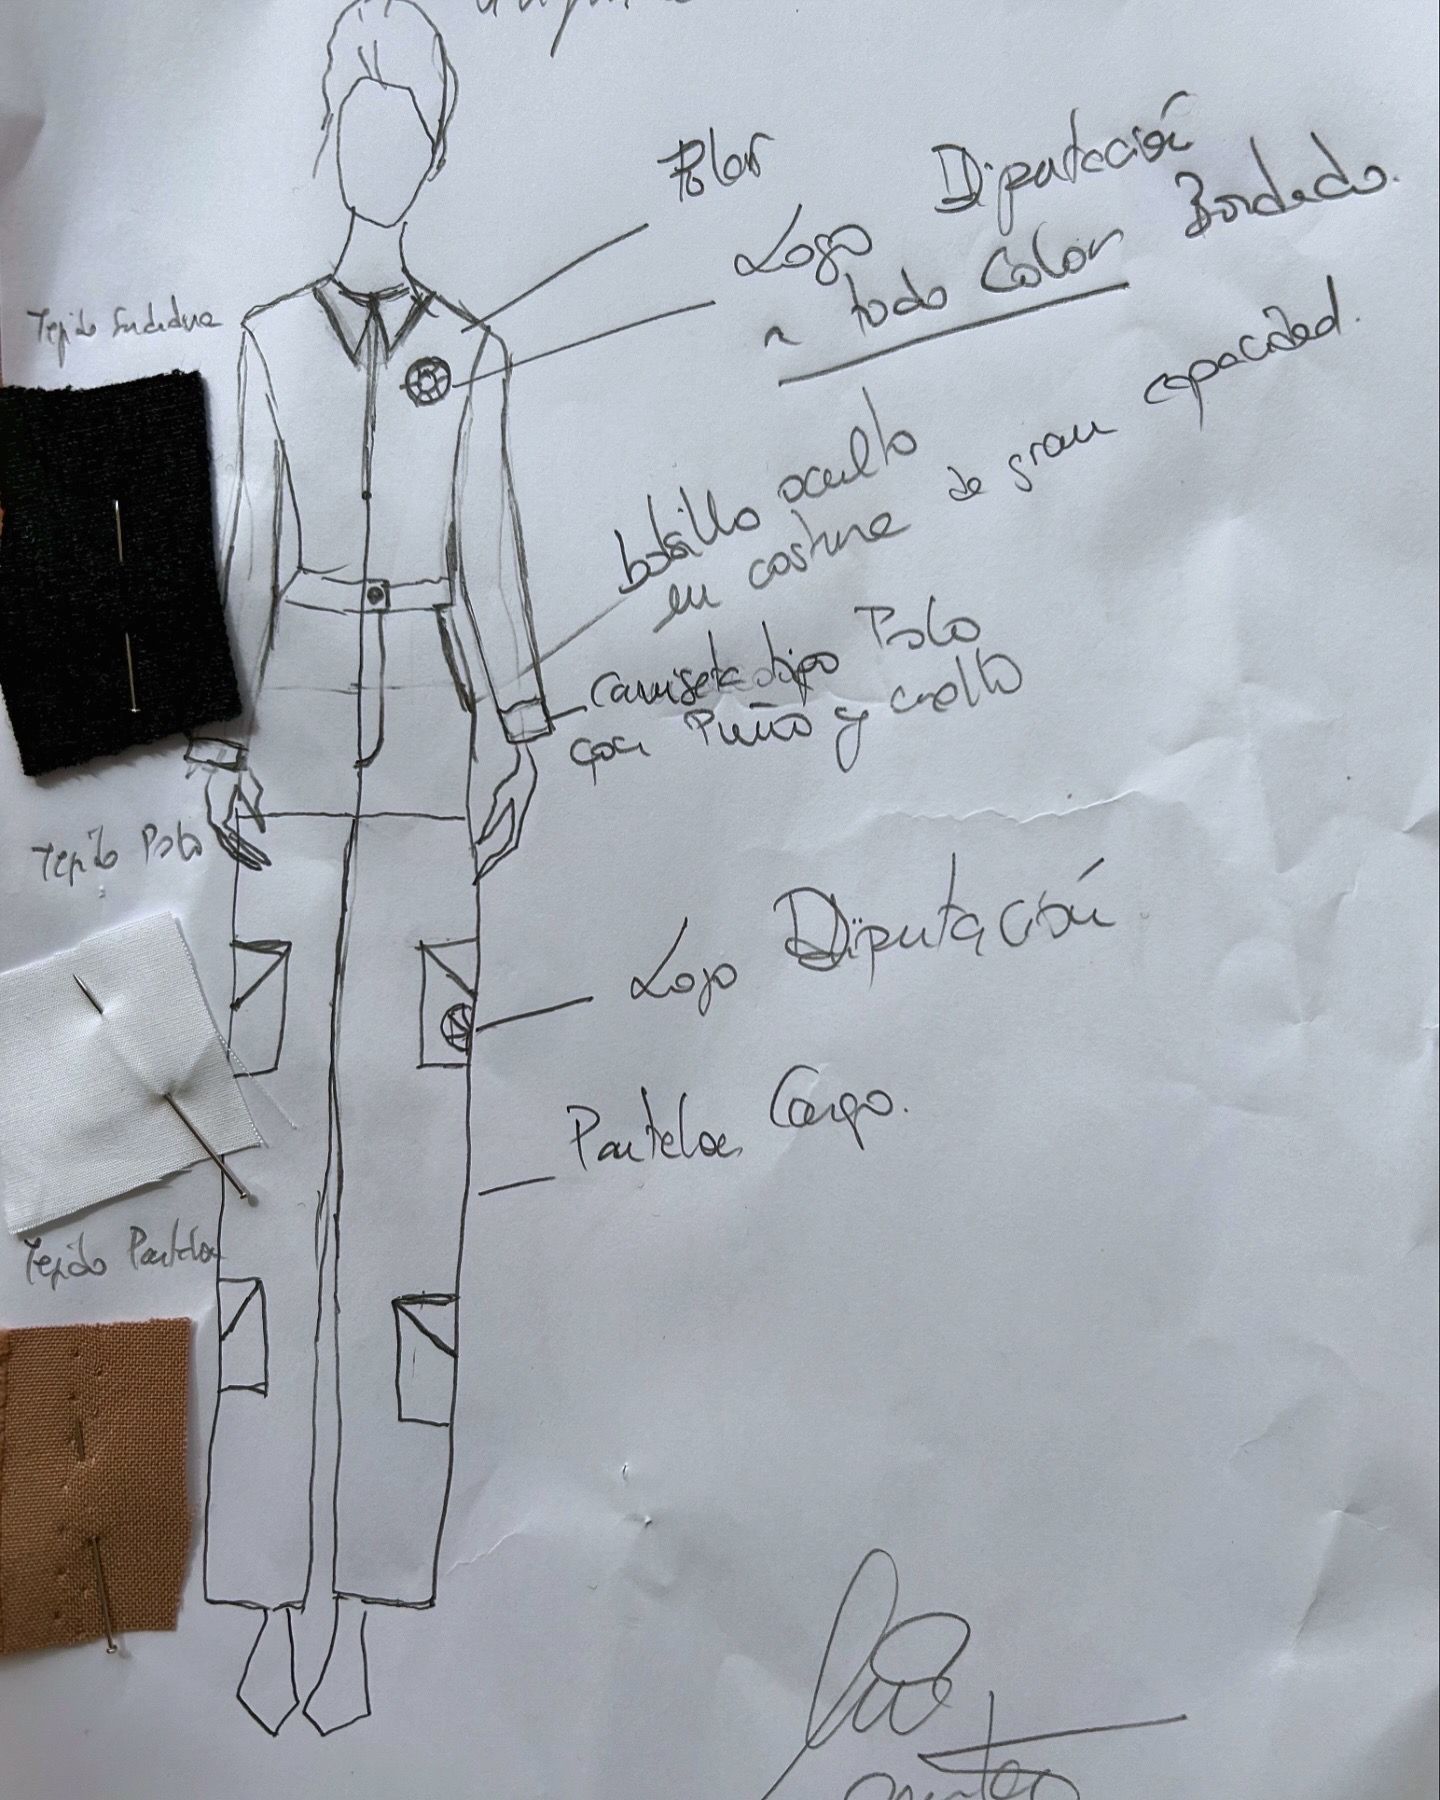 Polar
Logo Diputación
a todo Color Bordado.
Tejido
bolsillo oculto
en costura de gran capacidad.
Camiseta tipo Polo
con Puño y cuello
Tejido Polo
Logo Diputación
Pantalon Cargo.
Tejido Pantalon